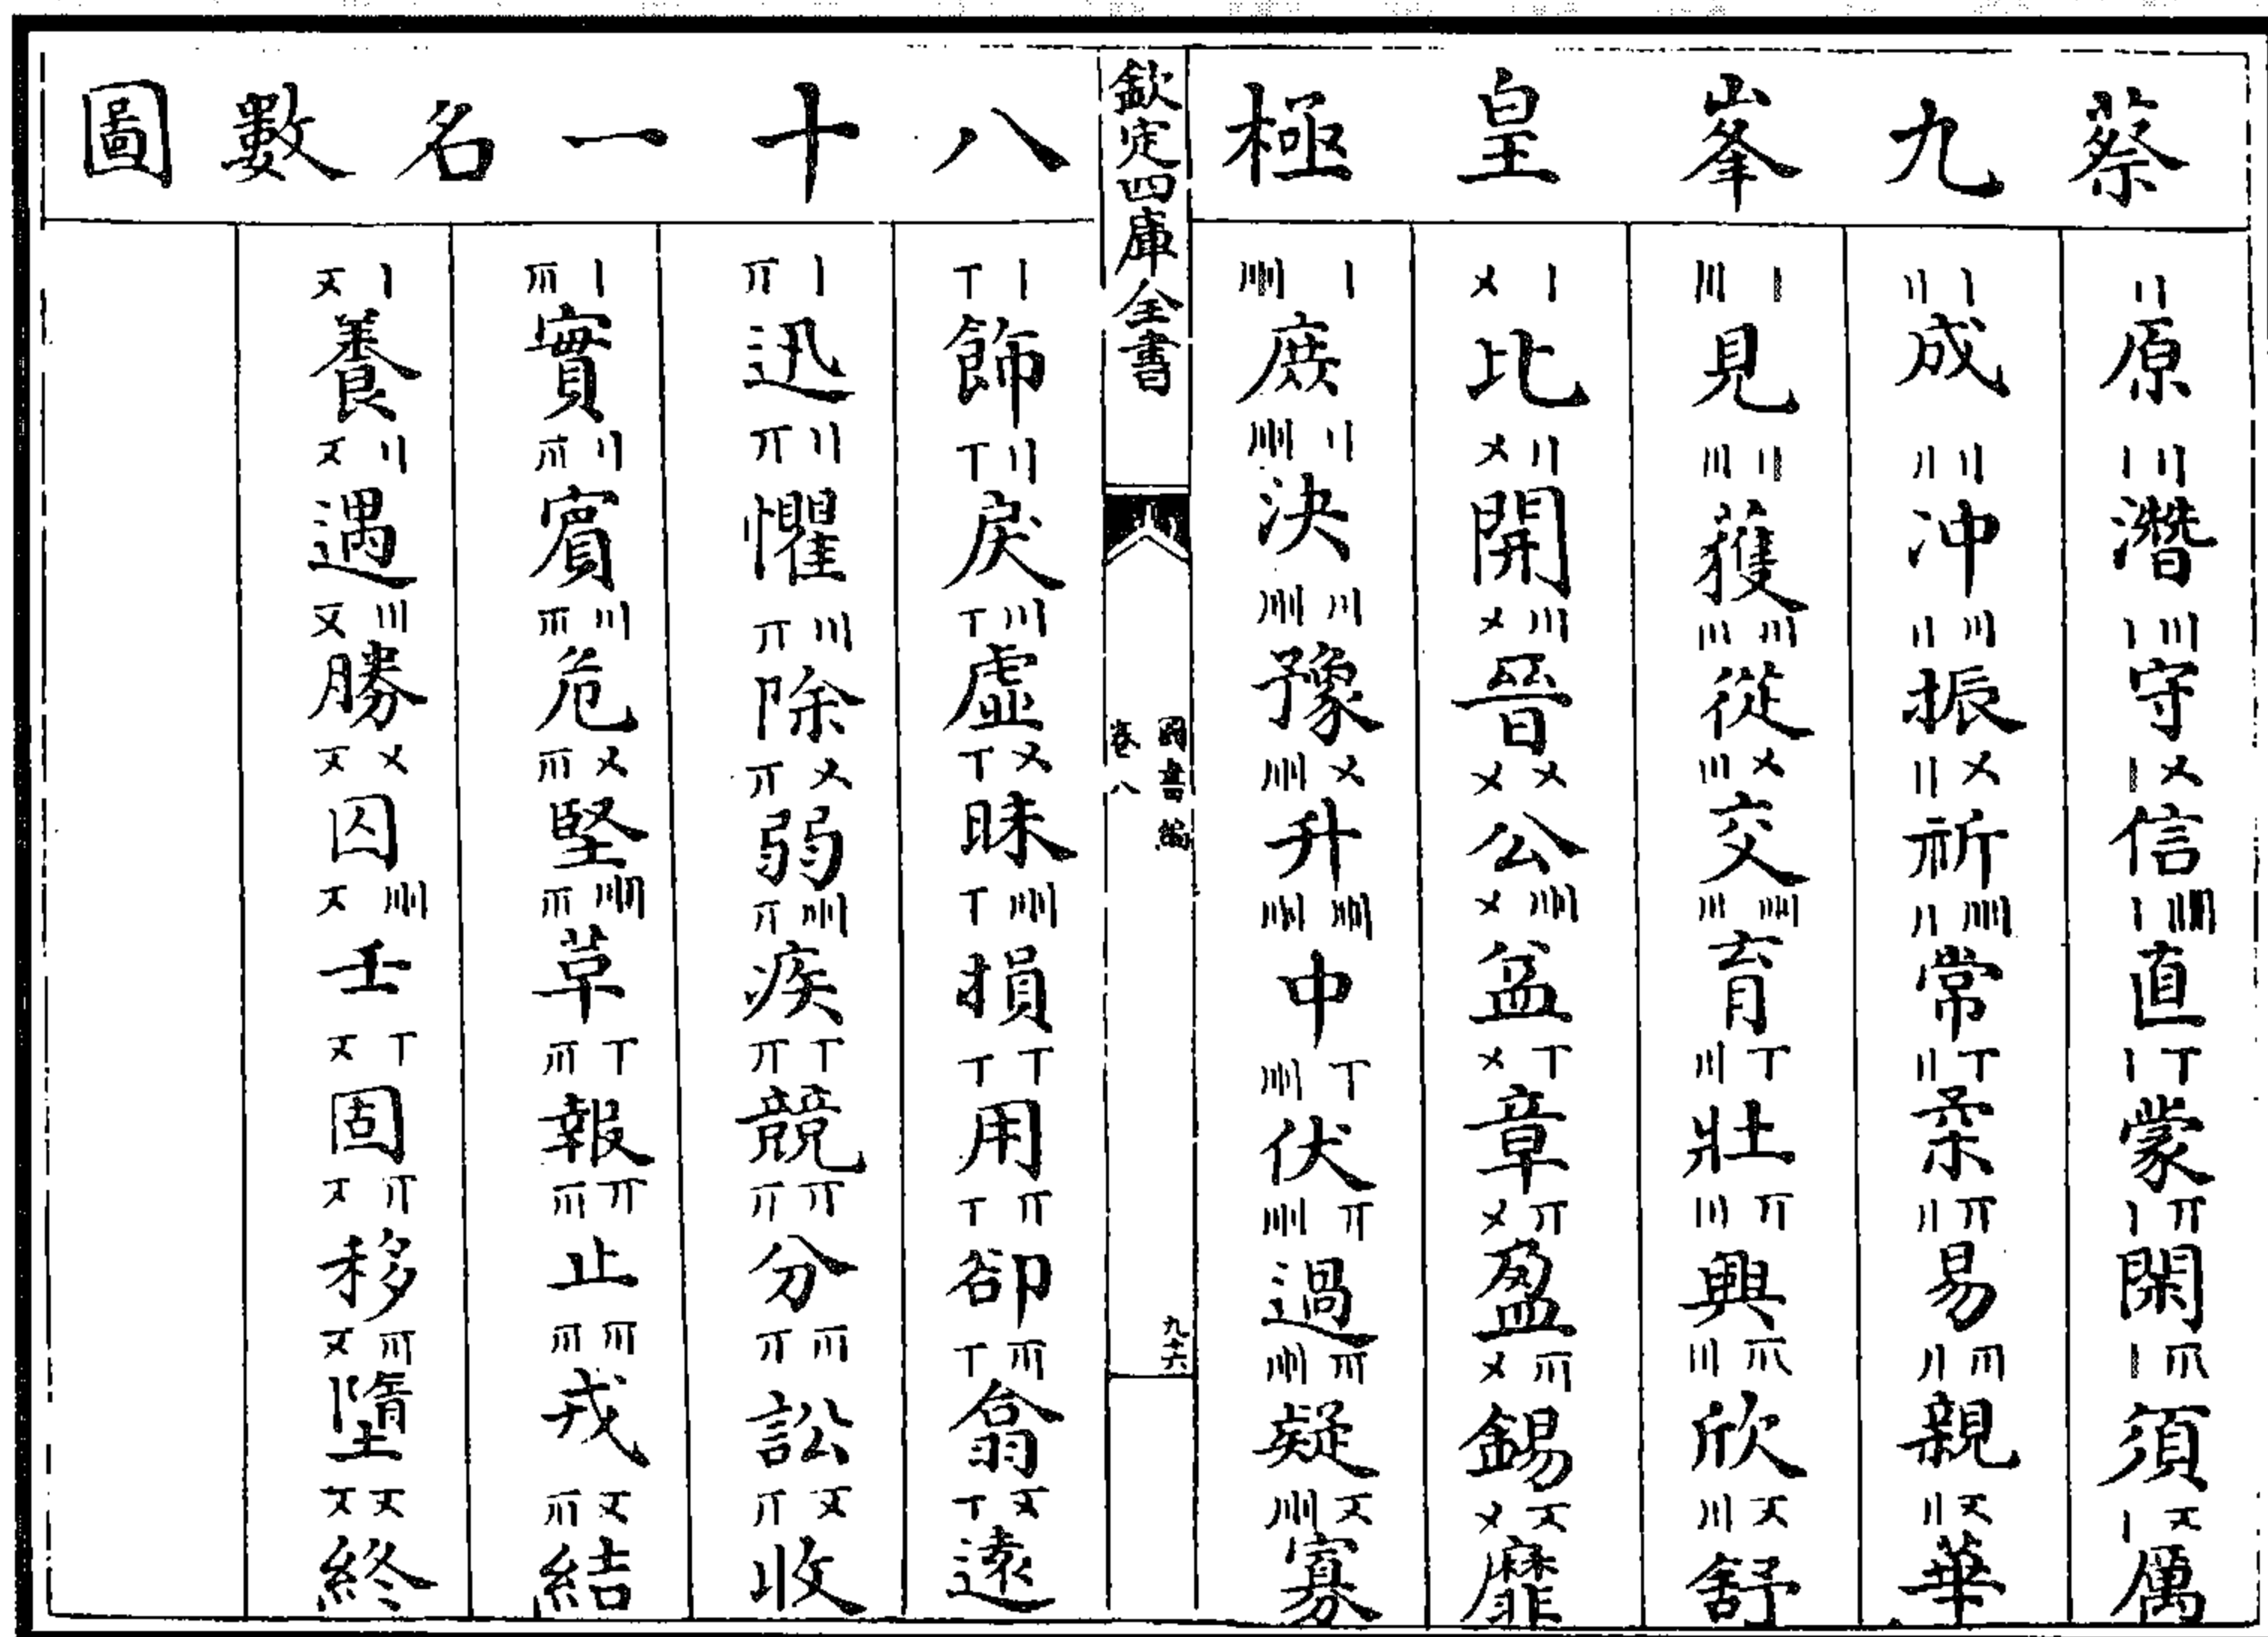 蔡九峯皇極
原潛守信直蒙閑須厲
成冲振祈常柔易親華
見獲從交育壯興欣舒
比開晉公益章盈錫靡
庶決豫升中伏過疑寡
欽定四庫全書
圖書編
卷八
九十六
八十一名數圖
飾戾虛昧損用卻翕遠
迅懼除弱疾競分訟收
實賓危堅草報止戎結
養遇勝囚壬固移墮終